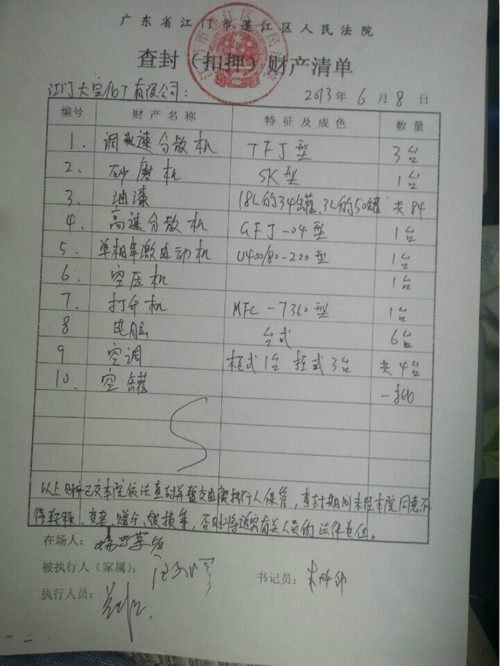 广东省江门市蓬江区人民法院
查封（扣押）财产清单
江门 有限公司： 2013年 6 月 8 日
编号 财产名称 特征及成色 数量
1. 调 速分散机 TFJ型 3台
2. 砂磨机 SK型 1台
3. 油漆 18L的34罐、3L的50罐 共84
4. 高速分散机 GFJ-04型 1台
5. 单相 动机 -220型 1台
6. 空压机 1台
7. 打印机 MFC-7360型 1台
8 电脑 台式 6台
9 空调 柜式1台 挂式3台 共4台
10. 空罐 一批
以上财产已交本院依法查封并暂交由被执行人保管，查封期间未经本院同意不
得转移、变卖、赠与、毁损等，否则将追究有关人员的法律责任。
在场人：
被执行人（家属）： 书记员：
执行人员：